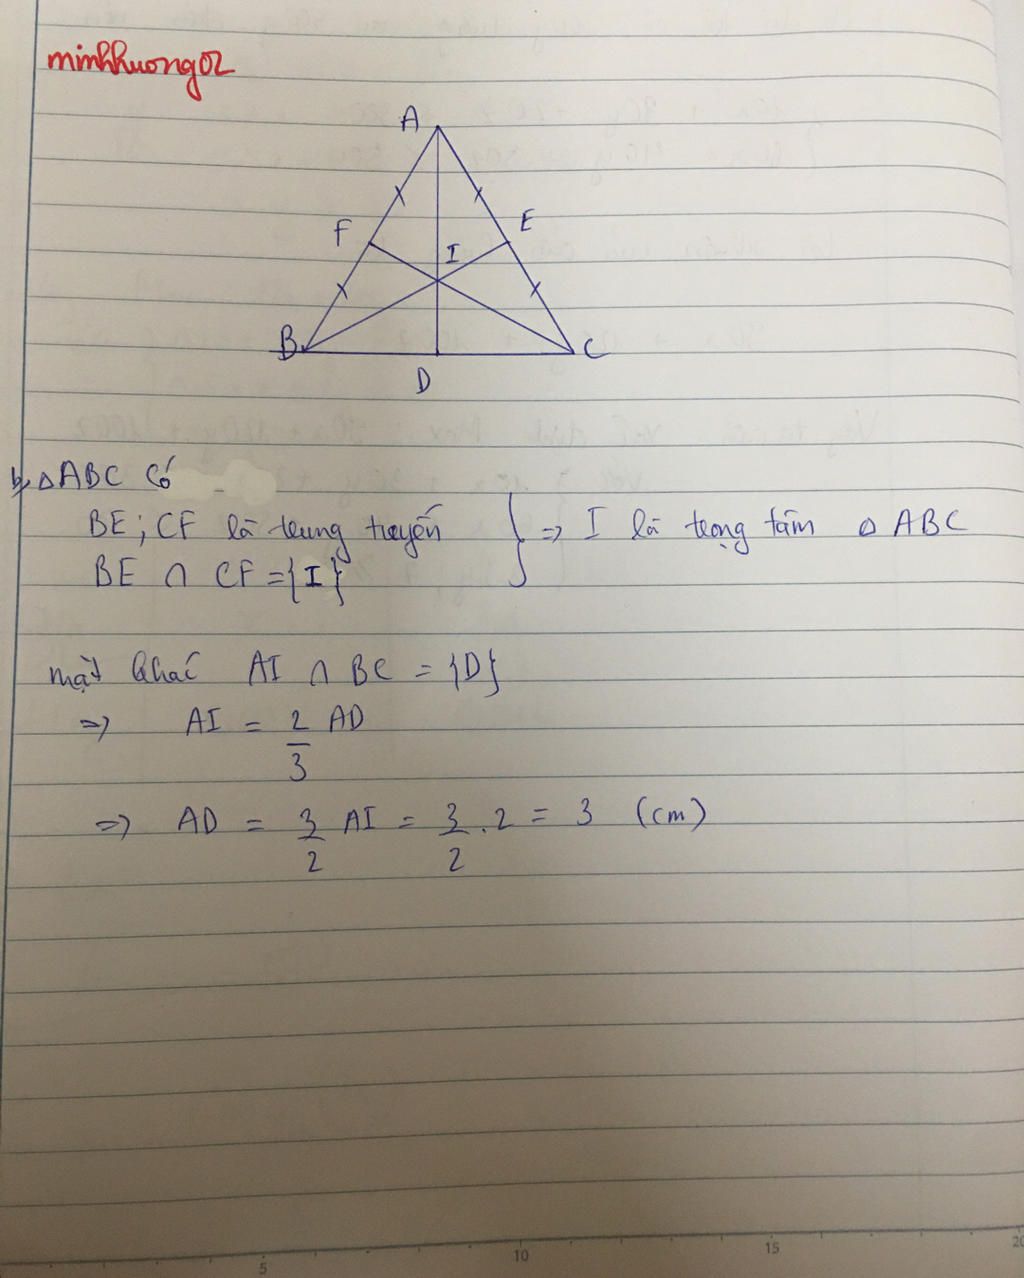 minhhuong02
A
F
E
I
B
C
D
b, △ABC có
BE ; CF là trung tuyến
BE ∩ CF = {I}
} => I là trọng tâm △ ABC
mặt khác AI ∩ BC = {D}
=> AI = 2/3 AD
=> AD = 3/2 AI = 3/2 . 2 = 3 (cm)
5 10 15 20